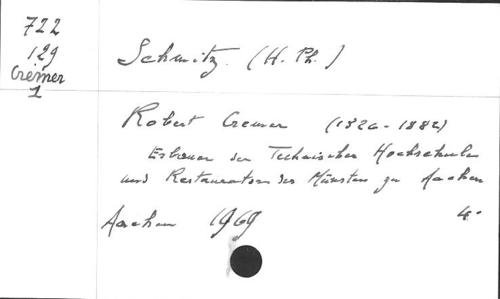 722
129
Cremer
1
Schmitz. (H. Ph.)
Robert Cremer (1826-1882)
Erbauer der Technischen Hochschule
und Restaurator des Münsters zu Aachen
Aachen 1969 4°